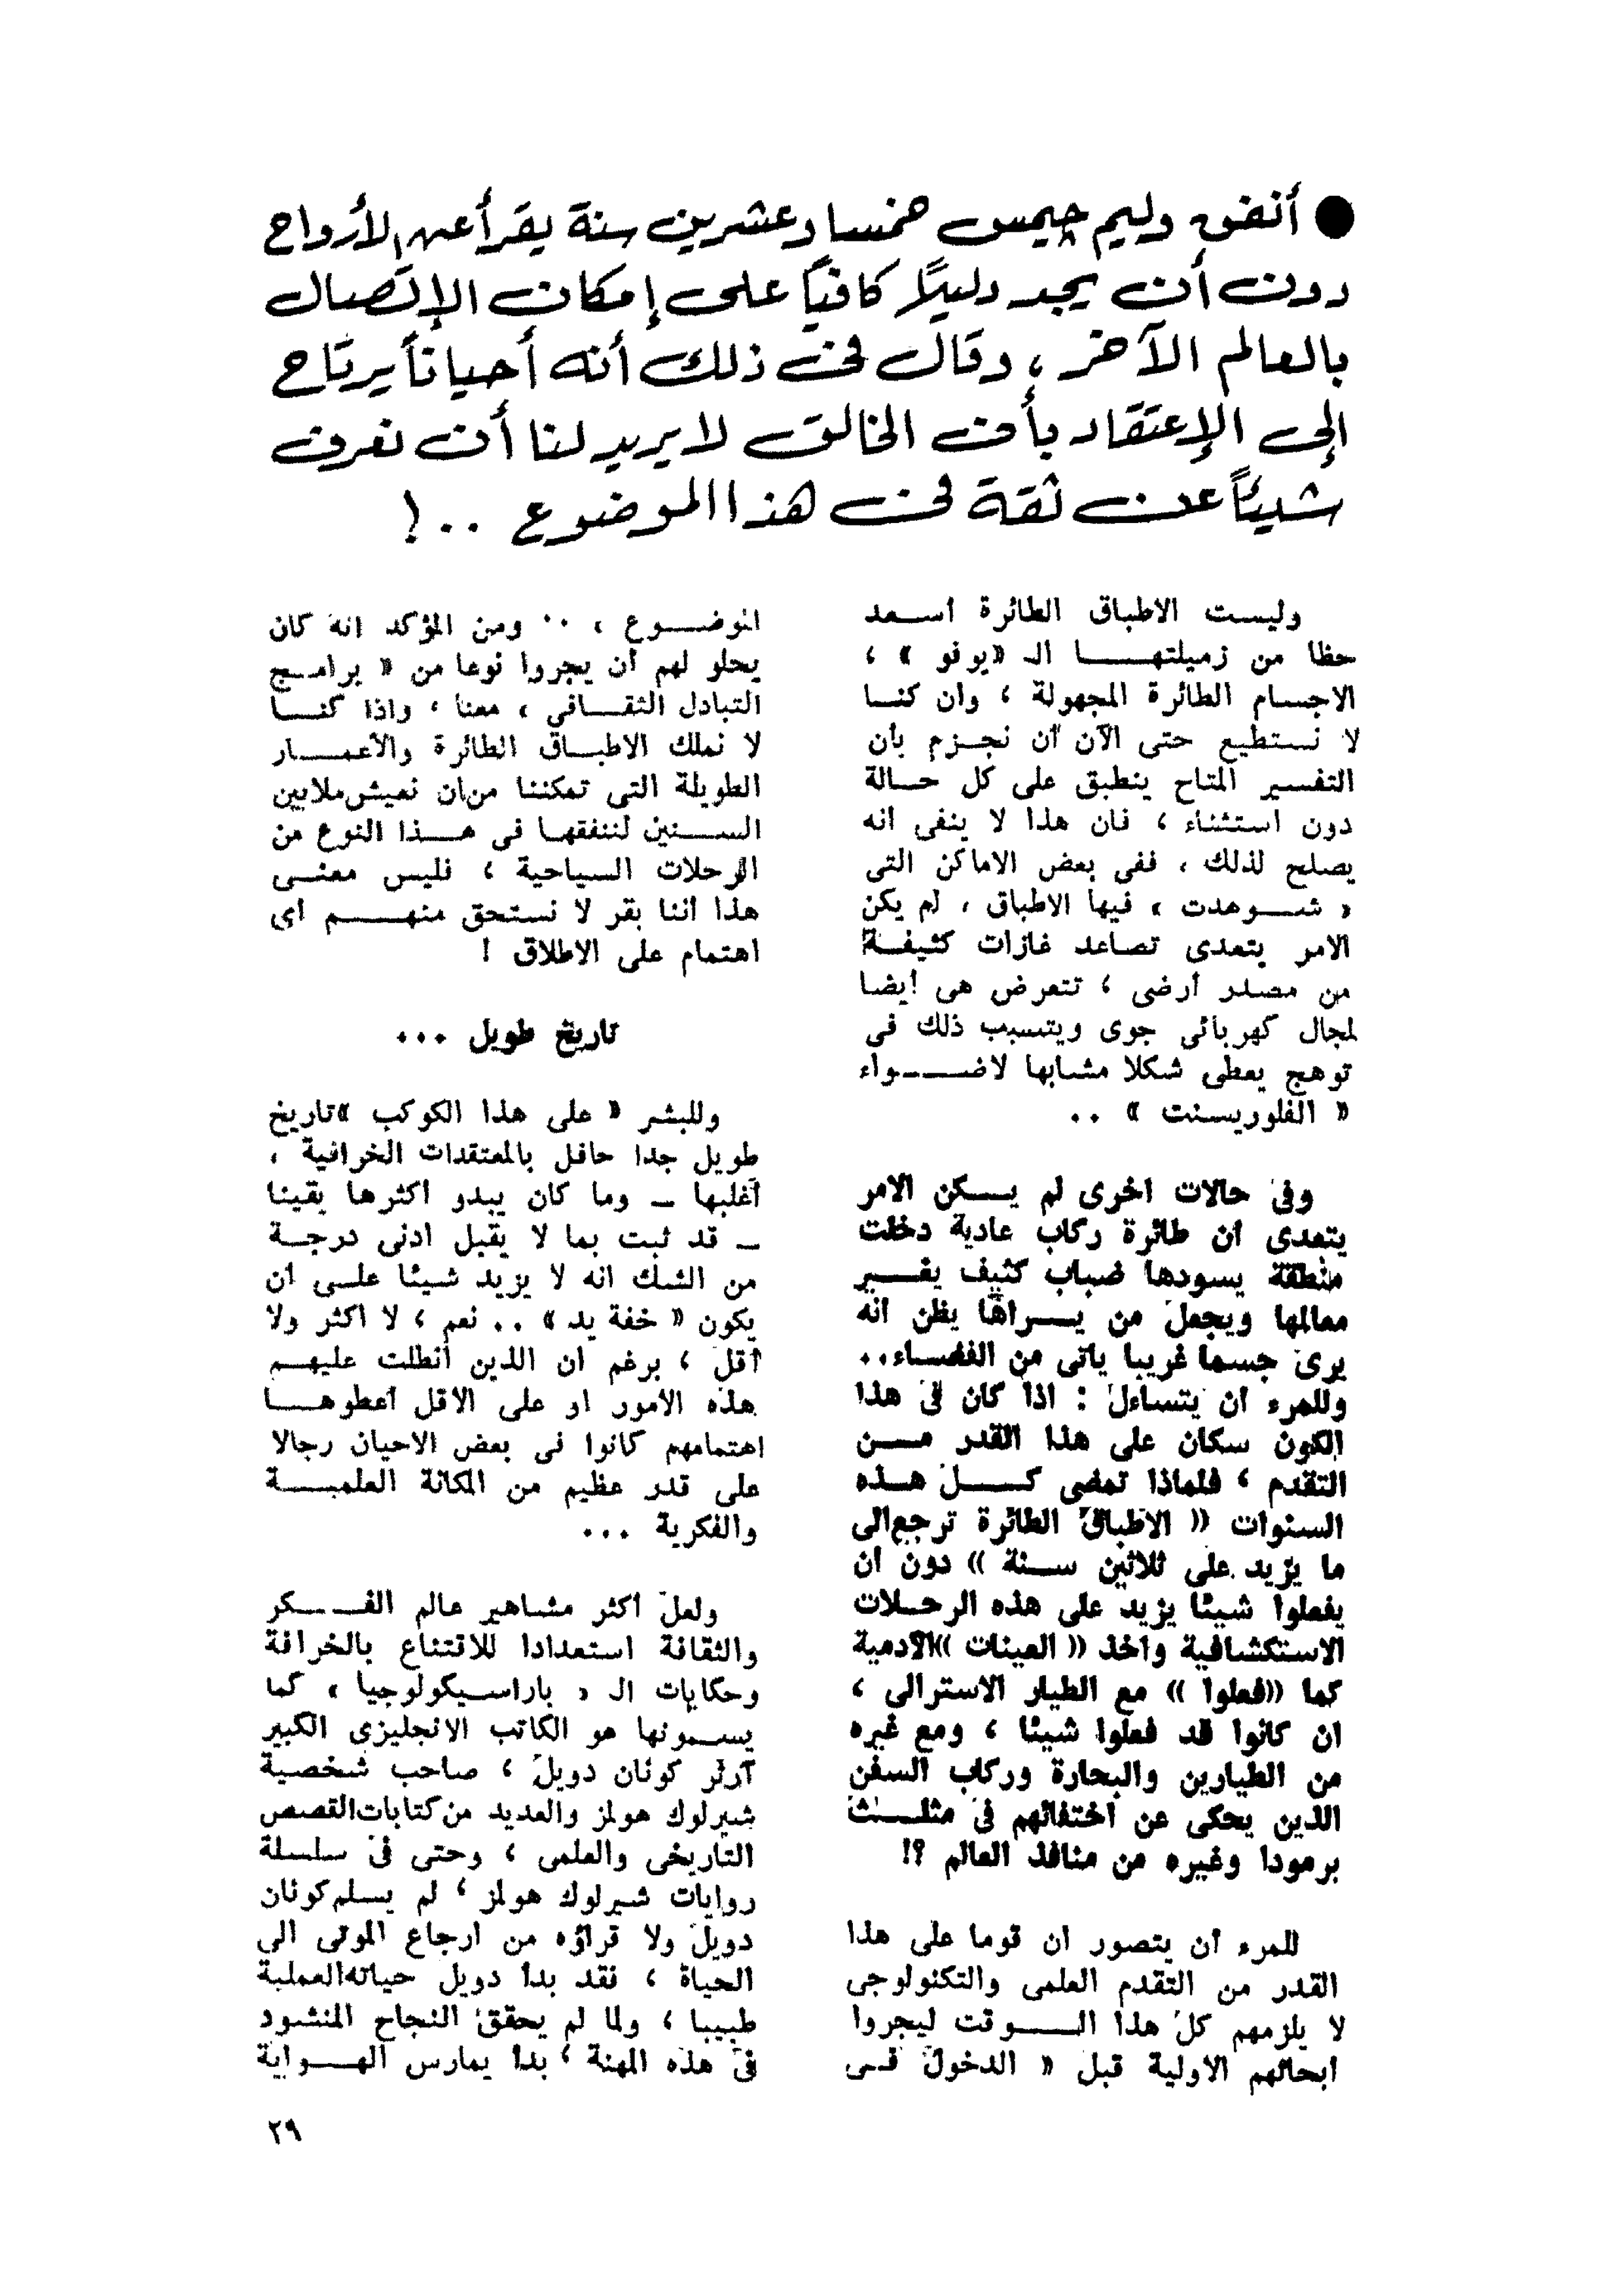 ● أنفق وليم چيمس خمسا وعشرين سنة يقرأ عن الأرواح
دون أن يجد دليلاً كافياً على إمكان الإتصال
بالعالم الآخر ، وقال فى ذلك أنه أحياناً يرتاح
إلى الإعتقاد بأن الخالق لا يريد لنا أن نعرف
شيئاً عن ثقة فى هذا الموضوع ..!
وليست الاطباق الطائرة اسعد
حظا من زميلتها الـ «يوفو» ،
الاجسام الطائرة المجهولة ، وان كنا
لا نستطيع حتى الآن أن نجزم بأن
التفسير المتاح ينطبق على كل حالة
دون استثناء ، فان هذا لا ينفى انه
يصلح لذلك ، ففى بعض الاماكن التى
« شوهدت » فيها الاطباق ، لم يكن
الامر يتعدى تصاعد غازات كثيفة
من مصدر أرضى ، تتعرض هى أيضا
لمجال كهربائى جوى ويتسبب ذلك فى
توهج يعطى شكلا مشابها لاضواء
« الفلوريسنت » ..
وفى حالات اخرى لم يكن الامر
يتعدى ان طائرة ركاب عادية دخلت
منطقة يسودها ضباب كثيف يغير
معالمها ويجعل من يراها يظن انه
يرى جسما غريبا ياتى من الفضاء..
وللمرء ان يتساءل : اذا كان فى هذا
الكون سكان على هذا القدر من
التقدم ، فلماذا تمضى كل هذه
السنوات « الاطباق الطائرة ترجع الى
ما يزيد على ثلاثين سنة » دون ان
يفعلوا شيئا يزيد على هذه الرحلات
الاستكشافية واخذ « العينات »الآدمية
كما «فعلوا » مع الطيار الاسترالى ،
ان كانوا قد فعلوا شيئا ، ومع غيره
من الطيارين والبحارة وركاب السفن
الذين يحكى عن اختفائهم فى مثلث
برمودا وغيره من منافذ العالم ؟!
للمرء أن يتصور ان قوما على هذا
القدر من التقدم العلمى والتكنولوجى
لا يلزمهم كل هذا الوقت ليجروا
ابحاثهم الاولية قبل « الدخول فى
الموضوع ، .. ومن المؤكد انه كان
يحلو لهم أن يجروا نوعا من « برامج
التبادل الثقافى » معنا ، واذا كنا
لا نملك الاطباق الطائرة والأعمار
الطويلة التى تمكننا من ان نعيش ملايين
السنين لننفقها فى هذا النوع من
الرحلات السياحية ، فليس معنى
هذا اننا بقر لا نستحق منهم اى
اهتمام على الاطلاق !
تاريخ طويل ...
وللبشر « على هذا الكوكب »تاريخ
طويل جدا حافل بالمعتقدات الخرافية ،
أغلبها – وما كان يبدو اكثرها يقينا
– قد ثبت بما لا يقبل ادنى درجة
من الشك انه لا يزيد شيئا على ان
يكون « خفة يد » .. نعم ، لا اكثر ولا
أقل ، برغم ان الذين انطلت عليهم
هذه الأمور او على الاقل أعطوها
اهتمامهم كانوا فى بعض الاحيان رجالا
على قدر عظيم من المكانة العلمية
والفكرية ...
ولعل أكثر مشاهير عالم الفكر
والثقافة استعدادا للاقتناع بالخرافة
وحكايات الـ « باراسيكولوجيا » كما
يسمونها هو الكاتب الانجليزى الكبير
آرثر كونان دويل ، صاحب شخصية
شيرلوك هولمز والعديد من كتابات القصص
التاريخى والعلمى ، وحتى فى سلسلة
روايات شيرلوك هولمز ، لم يسلم كونان
دويل ولا قراؤه من ارجاع الموتى الى
الحياة ، فقد بدأ دويل حياته العملية
طبيبا ، ولما لم يحقق النجاح المنشود
فى هذه المهنة ، بدأ يمارس الهواية
٢٩